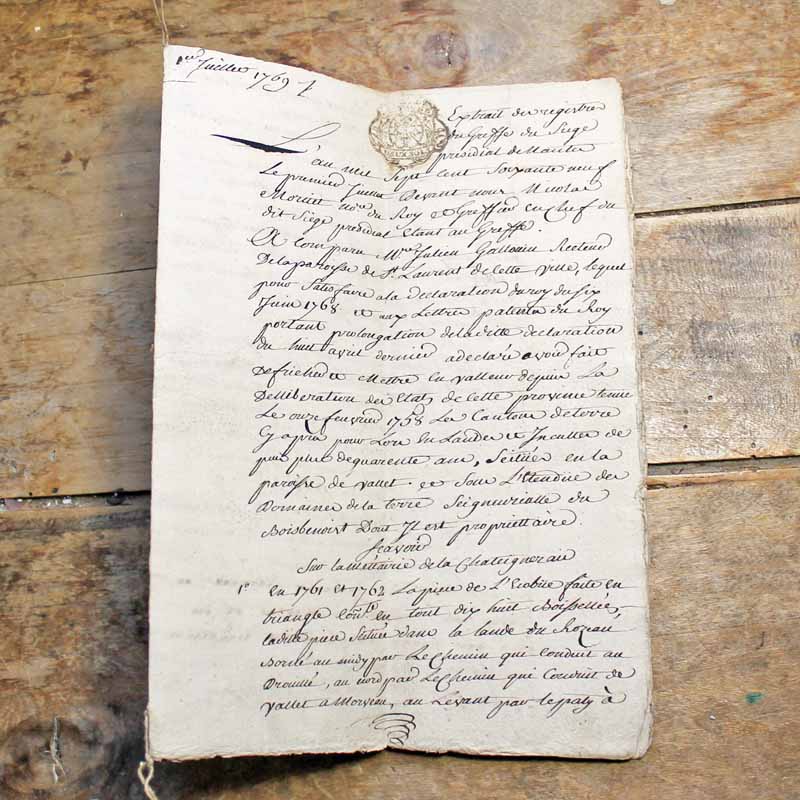 1er Juillet 1769
DEUX SOLS
Extrait des registres
du Greffe du Siege
presidial de Nantes
L'an mil sept cent soixante neuf
Le premier Devant nous Nicolas
du Roy et Greffier en Chef du
dit Siége présidial étant au Greffe.
A comparu Julien Recteur
De la paroisse de St. Laurent de cette ville, lequel
pour satisfaire a la declaration du roy du six
Juin 1768. et aux Lettres patentes du Roy
portant prolongation de la dite declaration
du huit avril dernier a declaré avoir fait
Defricher et Mettre en valleur depuis La
Delliberation des Etats de cette province tenue
Le onze fevrier 1758 Les Cantons de terre
Cy aprés pour Lors En Landes et Incultes de
puis plus de quarente ans, Scituées en la
paroisse de vallet. et sous L'Etendüe des
Domaines de la terre Seigneurialle du
Boisbenoist Dont Il est proprietaire.
Scavoir
Sur la métairie de la Chataigneraie
1º en 1761 et 1762 La piece de L'Ecobüe faite en
triangle en tout dix huit Boissellées
ladite piece Scituée dans la lande du Rozeau
Bordé au midy par Le Chemin qui conduit au
au nord par Le Chemin qui Conduit de
vallet a au Levant par le paty à